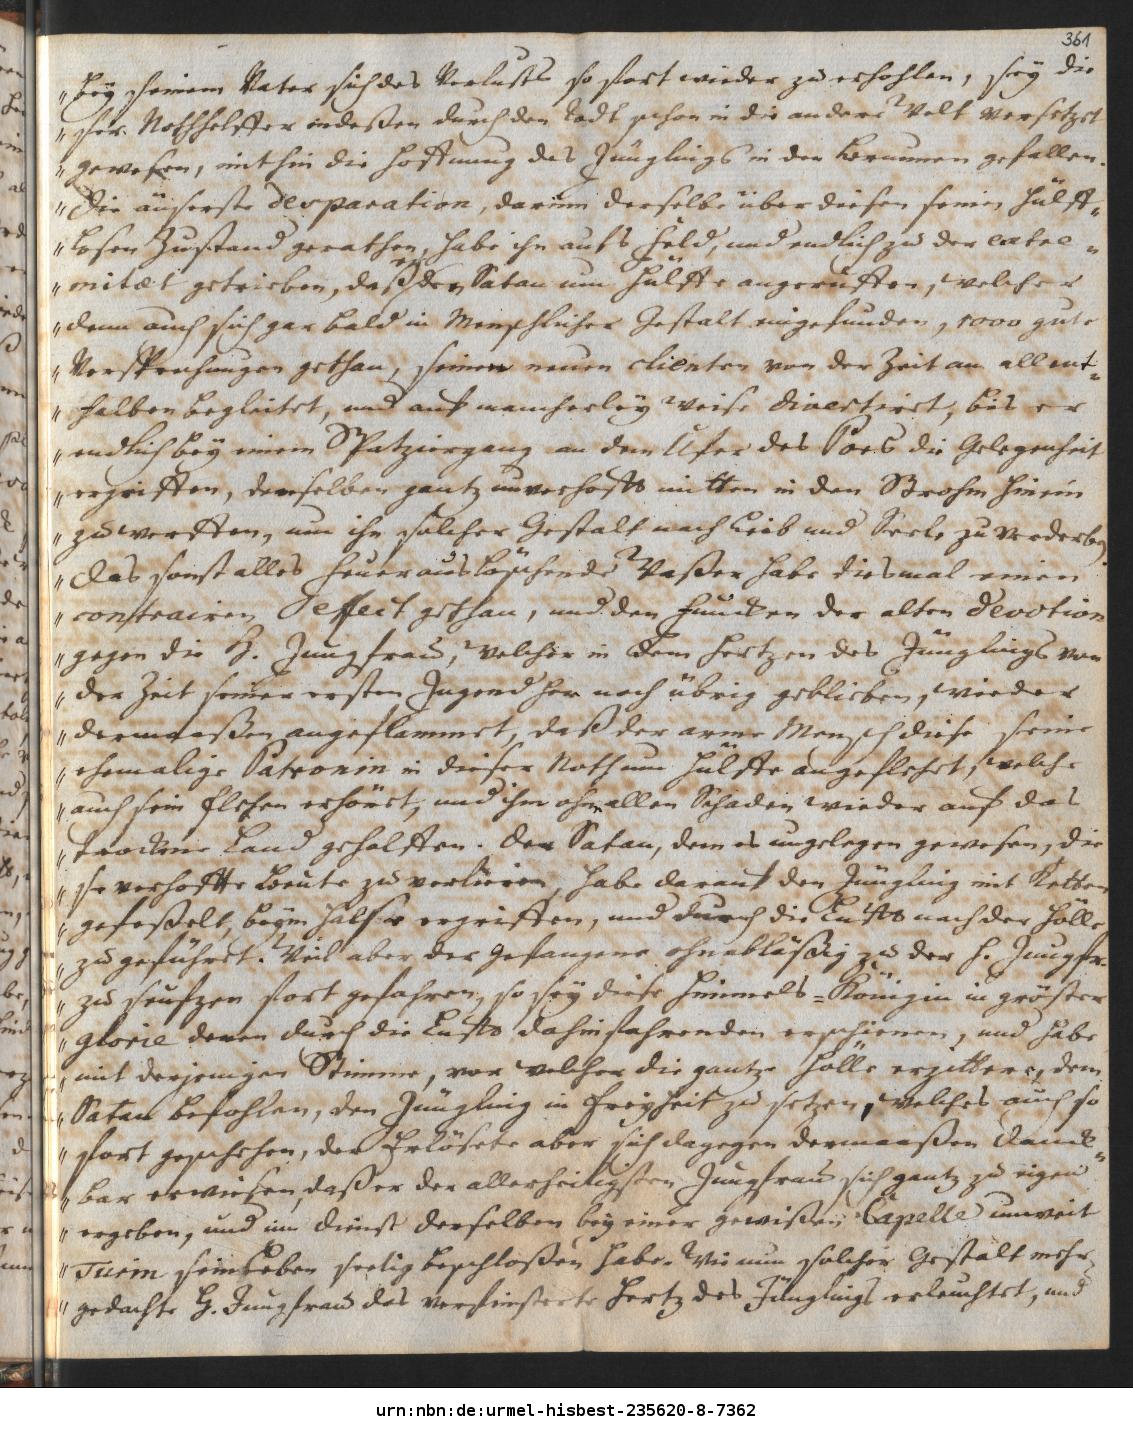 361
„ bey seinem Vater sich des Verlusts so fort wieder zu erhohlen, sey die
„ ser Nothhelffer indeßen durch den Todt schon in die andere Welt versetzet
„ gewesen, mithin die Hoffnung des Jünglings in den Brunnen gefallen.
„ Die äuserste Desparation, darinn derselbe über diesen seinen Hülff-
„ losen Zustand gerathen, habe ihn aufs Feld, und endlich zu der extre =
„ mitæt getrieben, daß er den Satan um Hülffe angeruffen, welcher
„ denn auch sich gar bald in Menschlicher Gestalt eingefunden, 1000 gute
„ Versprechungen gethan, seinen neuen clienten von der Zeit an allent-
„ halben begleitet, und auf mancherley Weise divertiret, bis er
„ endlich bey einem Spatziergang an dem Ufer des Poes die Gelegenheit
„ ergriffen, denselben gantz unverhofft mitten in den Strohm hinein
„ zu werffen, um ihn solcher Gestalt nach Leib und Seele zu verderben.
„ Das sonst alles Feuer auslöschende Waßer habe diesmal einen
„ contrairen Effect gethan, und den Funcken der alten Devotion
„ gegen die H. Jungfrau, welcher in dem Hertzen des Jünglings von
„ der Zeit seiner ersten Jugend her noch übrig geblieben, wieder
„ dermaaßen angeflammet, daß der arme Mensch diese seine
„ ehemalige Patronin in dieser Noth um Hülffe angeflehet, welche
„ auch sein flehen erhöret, und ihm ohn allen Schaden wieder auf das
„ trockene Land geholffen. Der Satan, dem es ungelegen gewesen, die
„ se verhoffte Beute zu verlieren, habe darauf den Jüngling mit Ketten
„ gefeßelt, beym Halse ergriffen, und durch die Luft nach der Hölle
„ zu geführet. Weil aber der Gefangene ohnabläßig zu der H. Jungfr.
„ zu seufzen fort gefahren, so sey diese Himmels-Königin in gröster
„ glorie denen durch die Luft dahinfahrenden erschienen, und habe
„ mit derjenigen Stimme, vor welcher die gantze Hölle erzittere, dem
„ Satan befohlen, den Jüngling in Freyheit zu setzen, welches auch so
„ fort geschehen, der Erlösete aber sich dagegen dermaaßen danck-
„ bar erwiesen, daß er der allerheiligsten Jungfrau sich gantz zu eigen
„ ergeben, und im dienst derselben bey einer gewißen Capelle unweit
„ Turin sein Leben seelig beschloßen habe. Wie nun solcher Gestalt mehr-
„ gedachte H. Jungfrau das verfinsterte Hertz des Jünglings erleuchtet, und
urn:nbn:de:urmel-hisbest-235620-8-7362